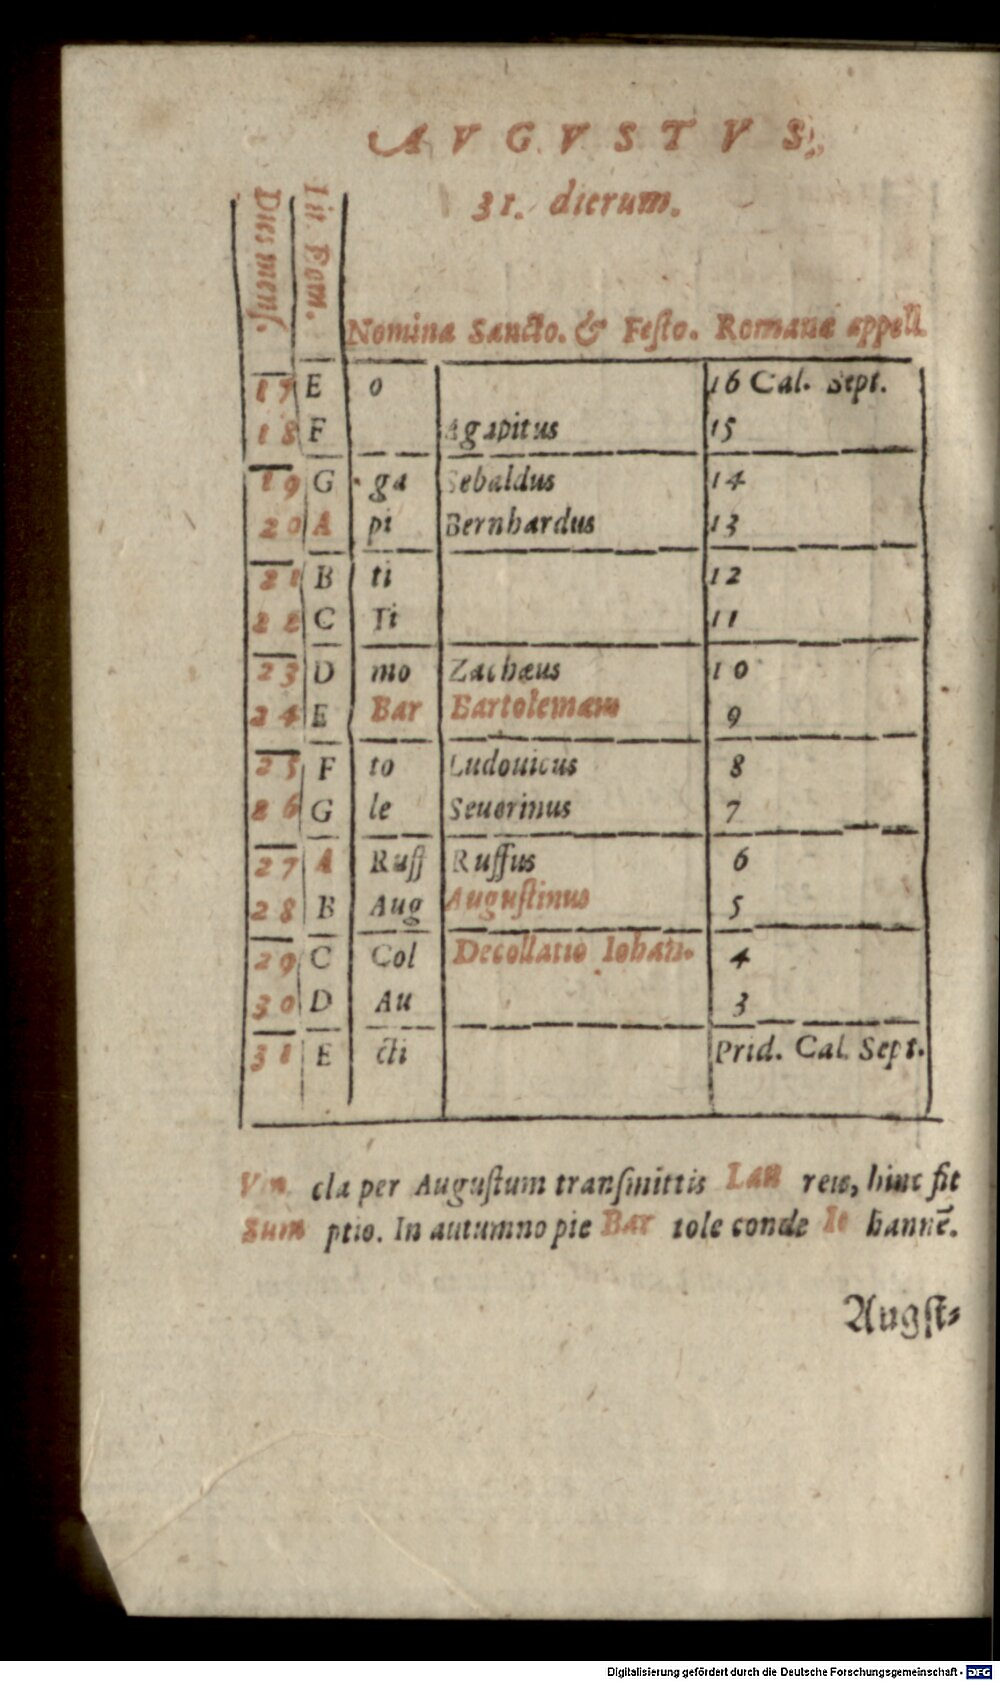 AVGVSTVS,
31. dierum.
Dies mens.
Lit. Dom.
Nomina Sancto. & Festo. Romanæ appell.
17 E o 16 Cal. Sept.
18 F Agapitus 15
19 G ga Sebaldus 14
20 A pi Bernhardus 13
21 B ti 12
22 C Ti 11
23 D mo Zachæus 10
24 E Bar Bartolemæus 9
25 F to Ludouicus 8
26 G le Seuerinus 7
27 A Ruff Ruffus 6
28 B Aug Augustinus 5
29 C Col Decollatio Iohan. 4
30 D Au 3
31 E cti Prid. Cal. Sept.
Vin cla per Augustum transmittis Lau reus, hinc fit
Sum ptio. In autumno pie Bar tole conde Io hannē.
Augst⸗
Digitalisierung gefördert durch die Deutsche Forschungsgemeinschaft - DFG